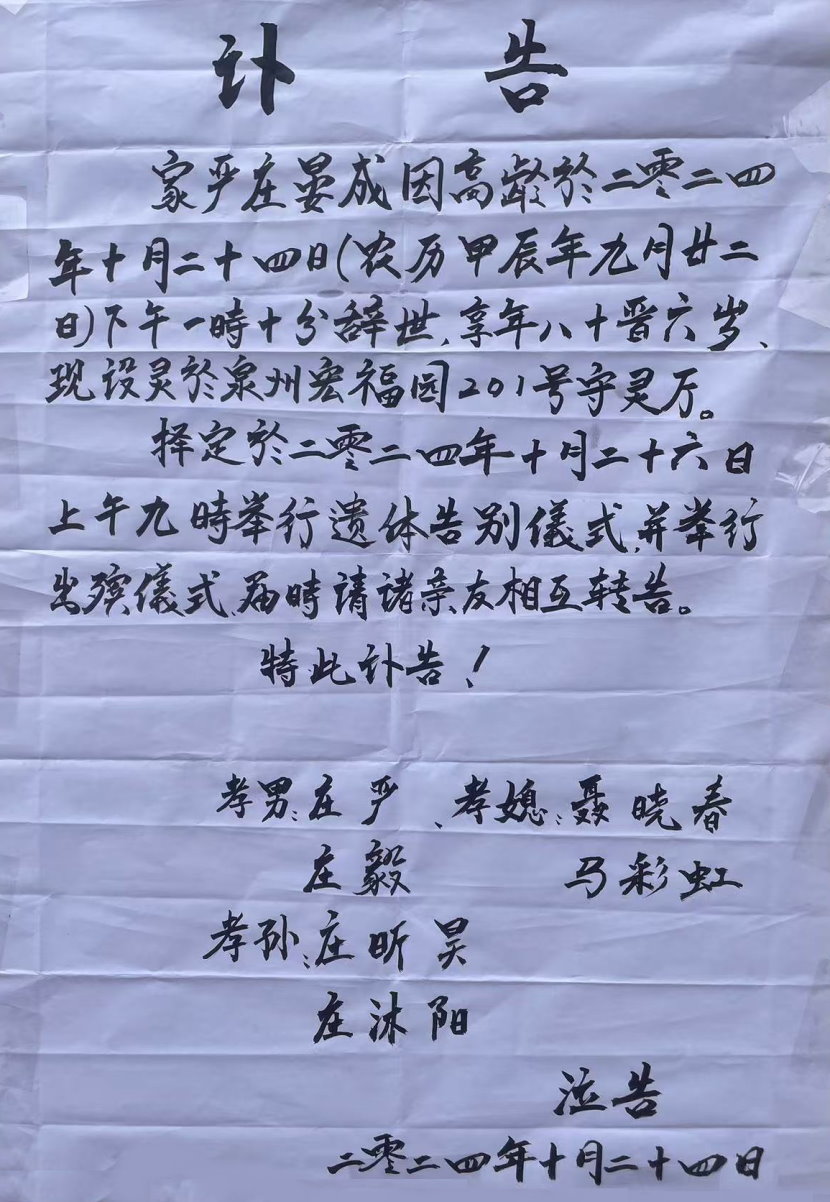 讣 告
家严庄晏成因高龄於二零二四
年十月二十四日(农历甲辰年九月廿二
日)下午一時十分辞世,享年八十晋六岁、
现设灵於泉州宏福园201号守灵厅。
择定於二零二四年十月二十六日
上午九時举行遗体告别儀式,并举行
出殡儀式,届時請诸亲友相互转告。
特此讣告!
孝男:庄严、孝媳:聂晓春
庄毅 马彩虹
孝孙:庄昕昊
庄沐阳
泣告
二零二四年十月二十四日